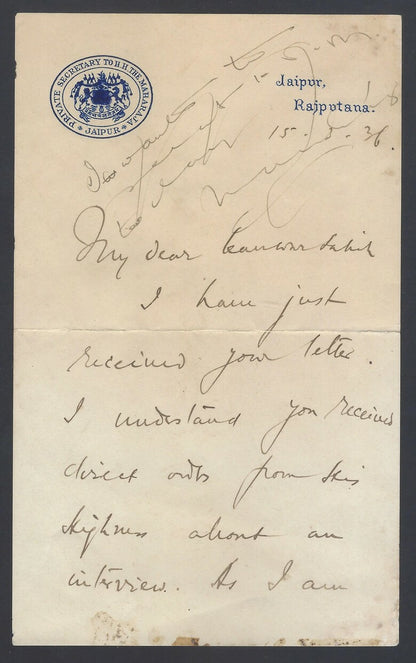 PRIVATE SECRETARY TO H.H. THE MAHARAJA
JAIPUR
Jaipur,
Rajputana.
15-5-36.
My dear Kanwar Sahib
I have just
received your letter.
I understand you received
direct orders from His
Highness about an
interview. As I am